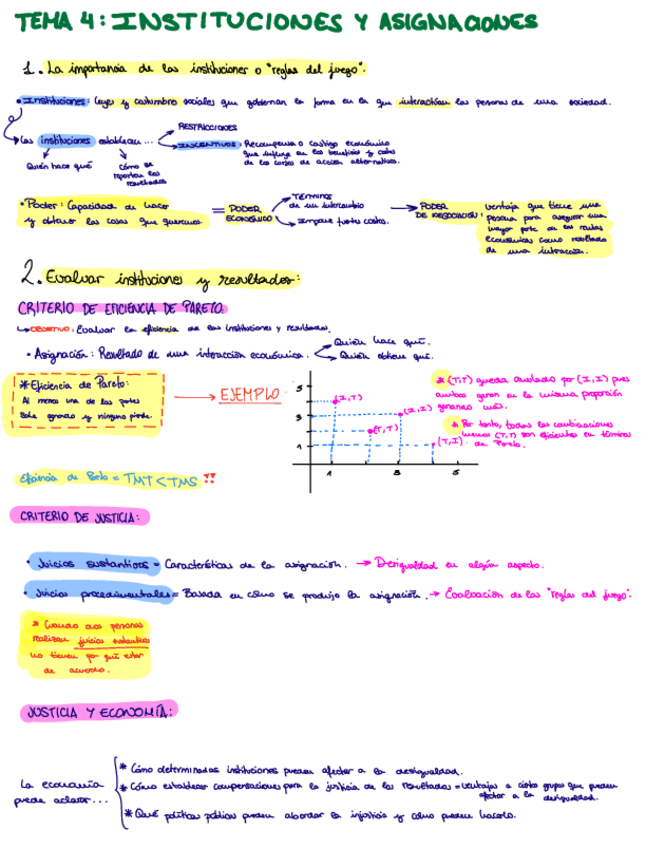 TEMA 4: INSTITUCIONES Y ASIGNACIONES
1. La importancia de las instituciones o "reglas del juego".
• Instituciones: leyes y costumbre sociales que gobiernan la forma en la que interactúan las personas de una sociedad.
RESTRICCIONES
Las instituciones establecen ...
INCENTIVOS: Recompensa o castigo económico
que influye en los beneficios y costes
de los cursos de acción alternativos.
Quién hace qué
cómo se
reparten los
resultados
• Poder: Capacidad de hacer
y obtener las cosas que queremos
= PODER
ECONÓMICO
Términos
de un intercambio
Impone costes.
PODER
DE NEGOCIACIÓN:
ventaja que tiene una
persona para asegurar una
mayor parte de las rentas
económicas como resultado
de una interacción.
2. Evaluar instituciones y resultados:
CRITERIO DE EFICIENCIA DE PARETO
OBJETIVO: Evaluar la eficiencia de las instituciones y resultados.
• Asignación: Resultado de una interacción económica.
Quién hace qué.
Quién obtiene qué.
*Eficiencia de Pareto:
Al menos una de las partes
sale ganando y ninguna pierde.
EJEMPLO
5
3
1
(I,T)
(I,I)
(T,T)
(T,I)
1
3
5
* (T,T) queda anulado por (I,I) pues
ambos ganan en la misma proporción
ganando más.
* Por tanto, todas las combinaciones
menos (T,T) son eficientes en términos
de Pareto.
Eficiencia de Pareto = TMT < TMS !!
CRITERIO DE JUSTICIA:
• Juicios sustantivos = Características de la asignación. → Desigualdad en algún aspecto.
• Juicios procedimentales = Basada en cómo se produjo la asignación. → Evaluación de las "reglas del juego".
* Cuando dos personas
realizan juicios sustantivos
no tienen por qué estar
de acuerdo.
JUSTICIA Y ECONOMÍA:
La economía
puede aclarar...
* Cómo determinadas instituciones pueden afectar a la desigualdad.
* Cómo establecer compensaciones para la justicia de los resultados = ventajas a ciertos grupos que pueden
afectar a la desigualdad.
* Qué políticas públicas pueden abordar la injusticia y cómo pueden hacerlo.